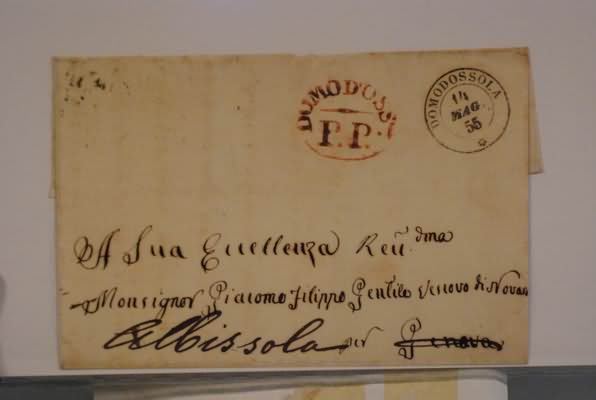 DOMOD'OSSA
P.P.
DOMODOSSOLA
14
MAG.
55
A Sua Eccellenza Reu.dma
Monsignor Giacomo Filippo Gentile Vescovo di Novara
Albissola per Genova